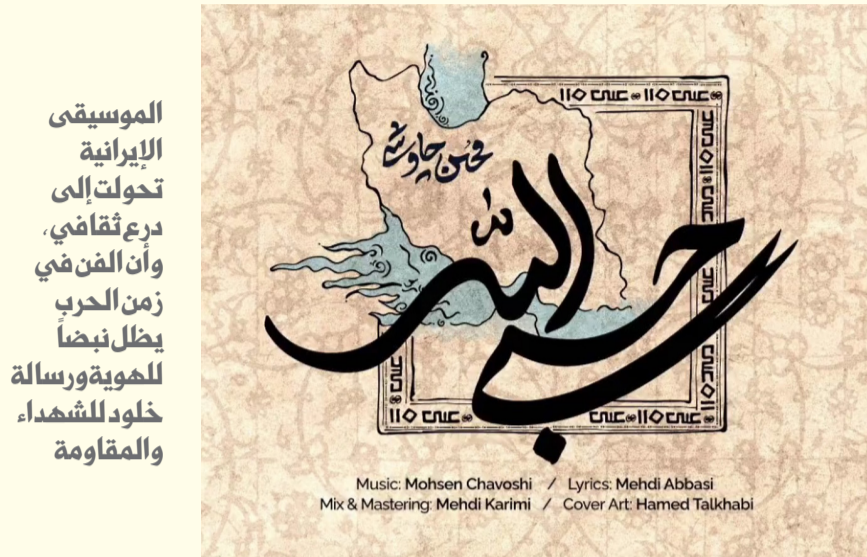 الموسيقى
الإيرانية
تحولت إلى
درع ثقافي،
وأن الفن في
زمن الحرب
يظل نبضاً
للهوية ورسالة
خلود للشهداء
والمقاومة
علی ۱۱۰ علی ۱۱۰
محسن چاوشی
حسبی الله
علی ۱۱۰ علی ۱۱۰
علی ۱۱۰
Music: Mohsen Chavoshi / Lyrics: Mehdi Abbasi
Mix & Mastering: Mehdi Karimi / Cover Art: Hamed Talkhabi